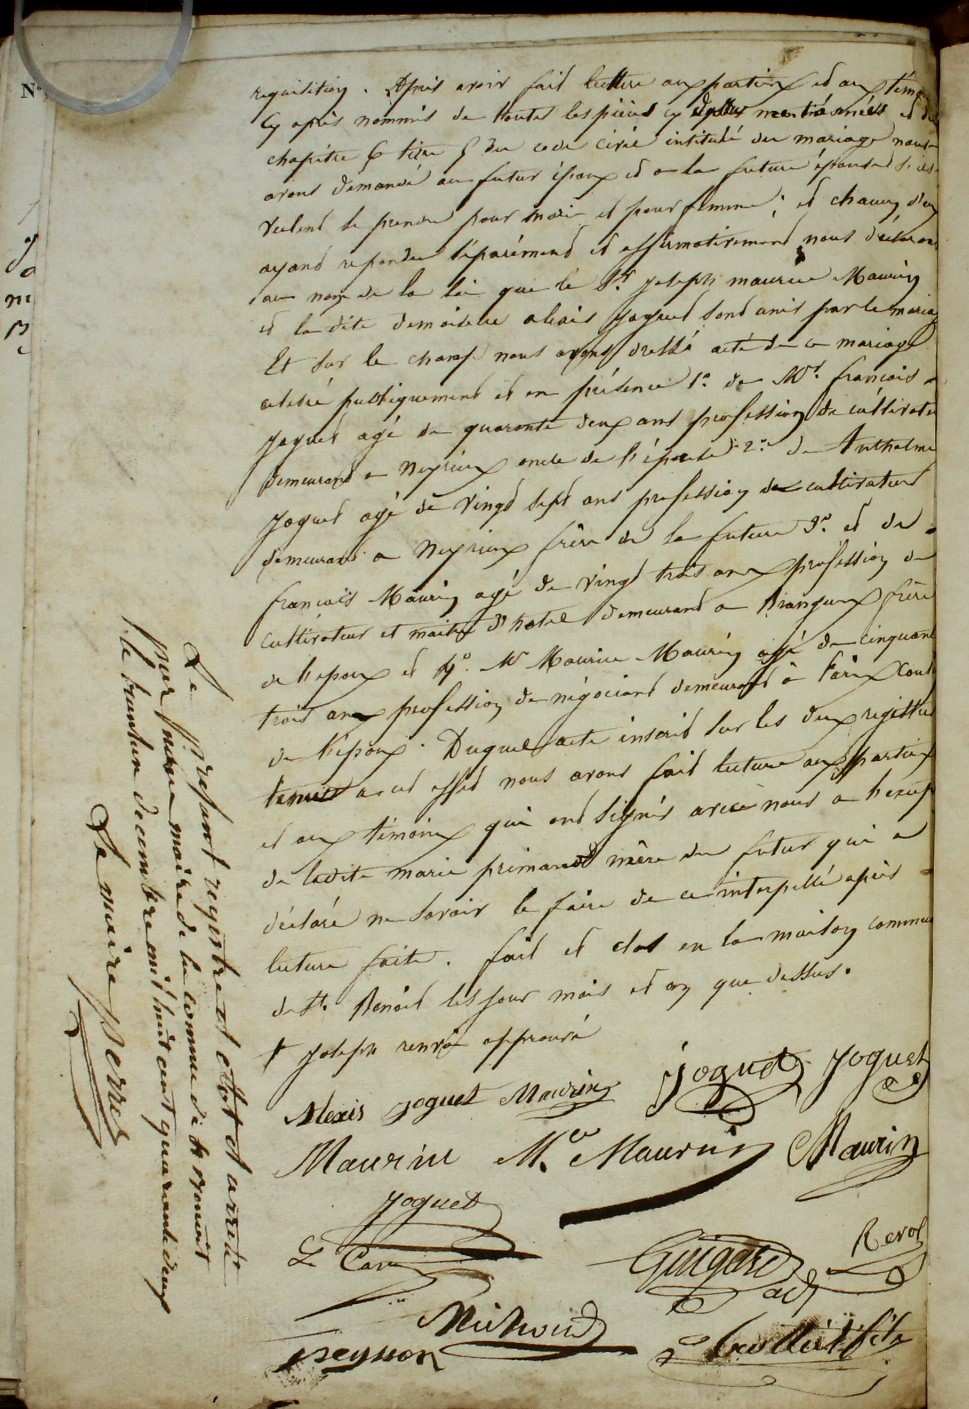 requisition. Après avoir fait lecture aux parties et aux tém
Cy après nommés de toutes les pièces cy dessus mentionnées et du
chapitre 6 titre 5 du code civil intitulé du mariage nous
avons demandé au futur époux et a la future épouse s'ils
veulent se prendre pour mari et pour femme; et chacun d'eux
ayant repondu séparément et affirmativement nous déclarons
au nom de la loi que le Sr joseph maurice Maurin
et la dite demoiselle alexis joguet sont unis par le mariage
Et sur le champ nous avons dressé acte de ce mariage
célébré publiquement et en présence 1° de Mr. francois
joguet agé de quarante deux ans profession de cultivateur
demeurant a Meyrieux oncle de l'épouse 2° de Anthelme
joguet agé de vingt sept ans profession de cultivateur
demeurant a Meyrieux frère de la future 3° et de
francois Maurin agé de vingt trois ans profession de
cultivateur et maitre d'hotel demeurant a Brangues frère
de l'epoux et 4° Mr Maurice Maurin agé de cinquante
trois ans profession de négociant demeurant à Paris
de l'époux. Duquel acte inscrit sur les deux registres
tenus a cet effet nous avons fait lecture aux parties
et aux témoins qui ont signés avec nous a
de ladite marie mère du futur qui a
déclaré ne savoir le faire de ce interpellé après
lecture faite. fait et clos en la maison commune
de St. Benoit les jour mois et an que dessus.
joseph renvoi approuvé
Alexis joguet Maurin joguet joguet
Maurin M.ce Maurin Maurin
joguet
Guigard Revol
Michoud
Peysson fils
Le présent registre est clot et arrêté
par nous maire de la comune de St Benoit
le trente un decembre mil huit cent quarante deux
Le maire